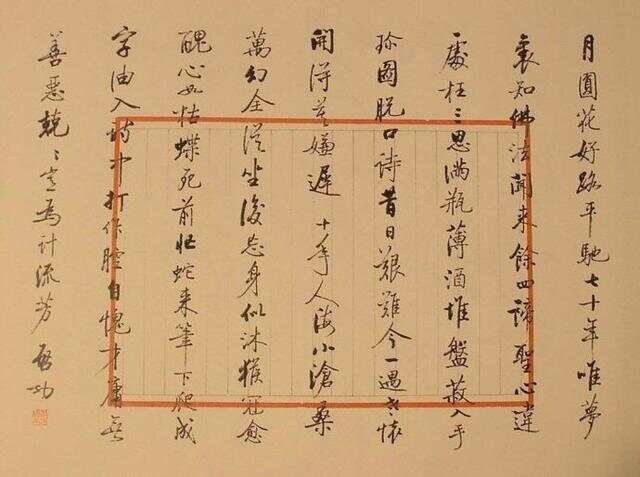 月圓花好路平馳七十年唯夢
裏知佛法聞來餘四諦聖心違
一處枉三思滿瓶薄酒堆盤菽入手
珍圖脫口詩昔日艱難今一遇老懷
開得莫嫌遲 十年人海小滄桑
萬幻全從坐後忘身似沐猴冠愈
醜心如枯蝶死前忙蛇來筆下爬成
字油入詩中打作腔自愧才庸無
善惡兢〻豈為計流芳 啟功